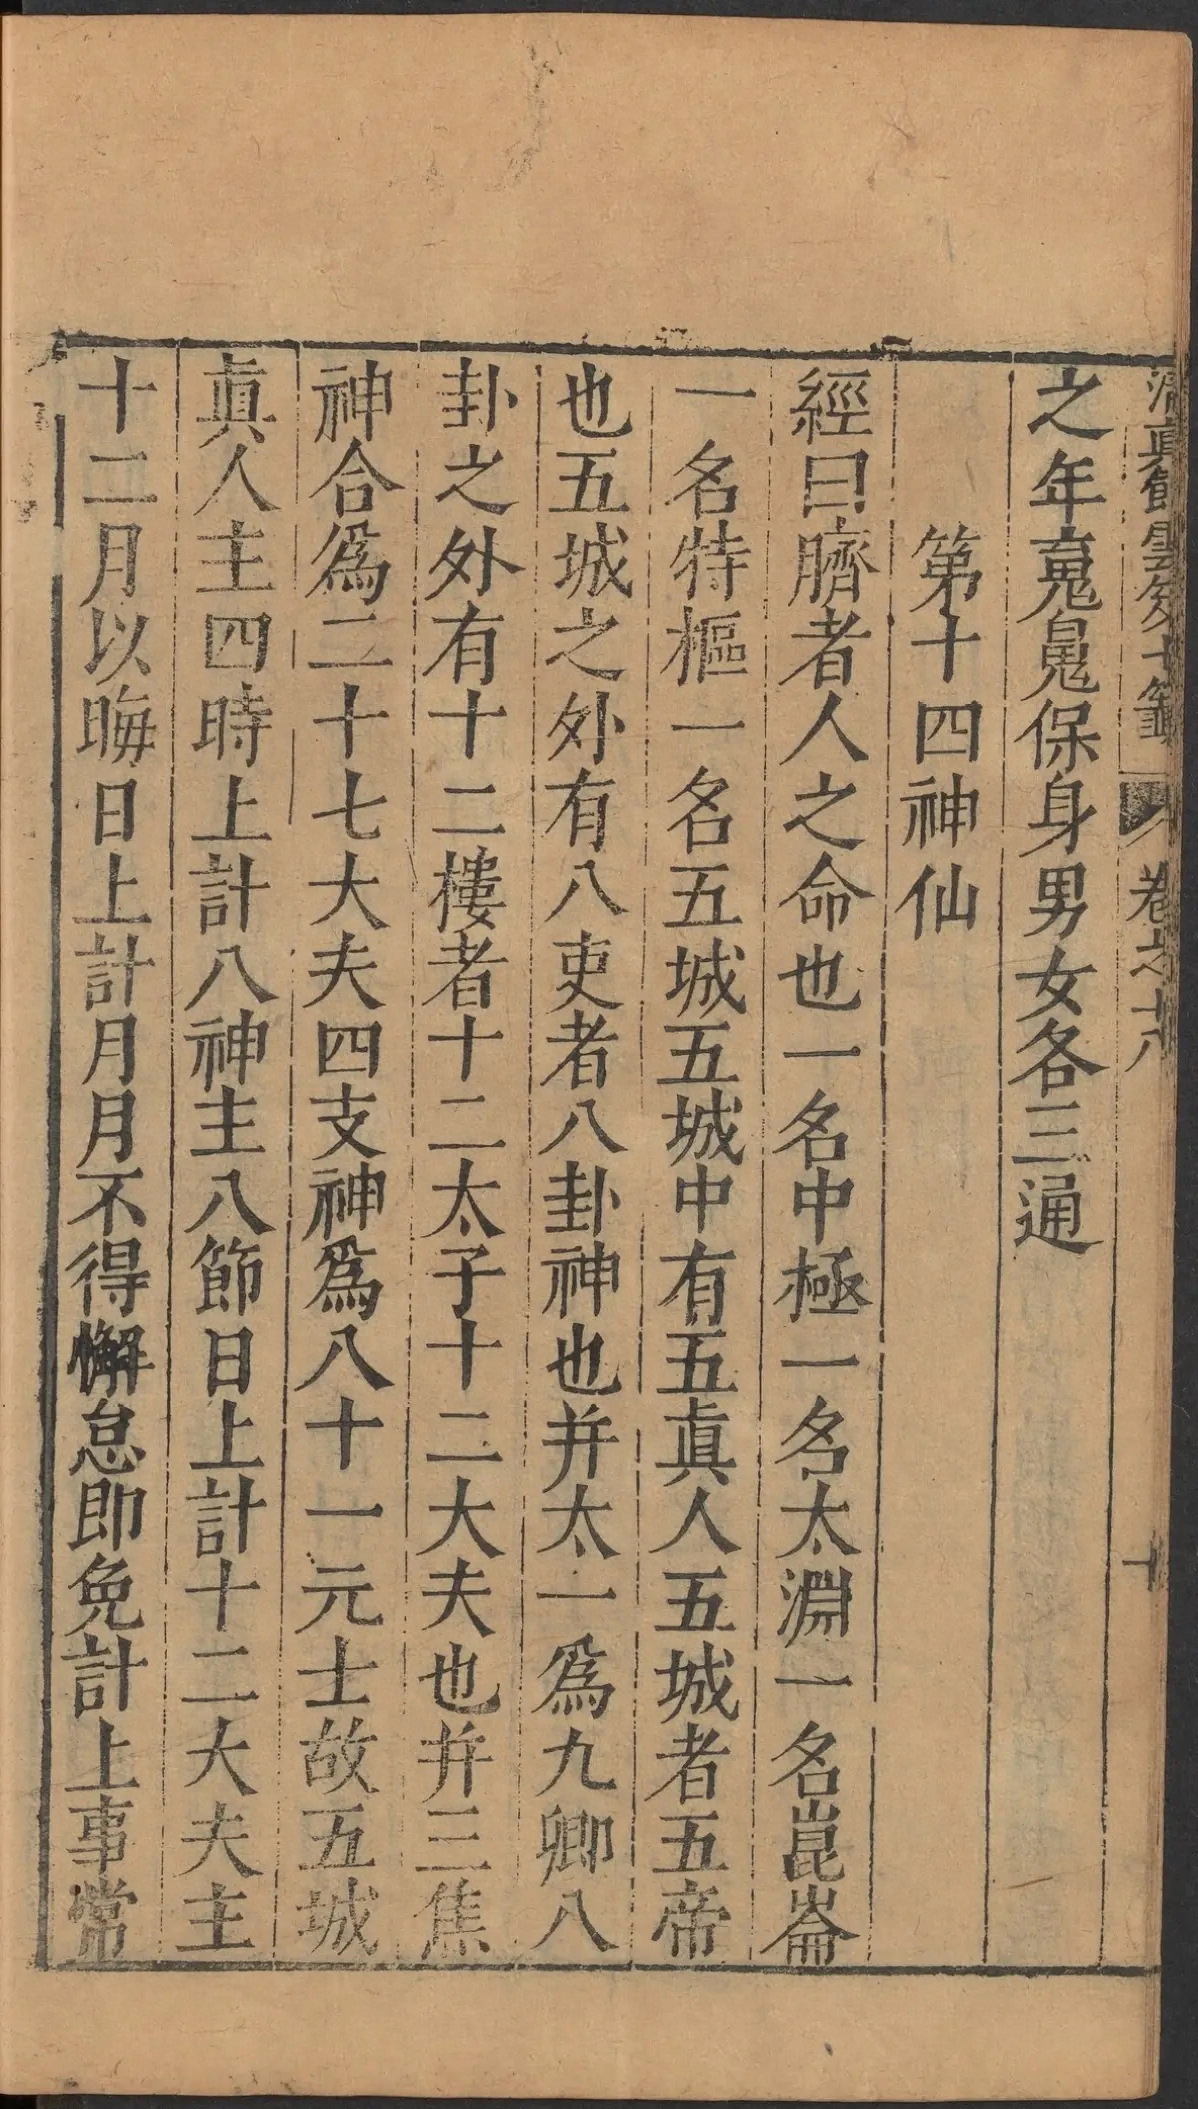 清真館雲笈七籤 卷之十八 十
之年𩲸𩲴保身男女各三通
第十四神仙
經曰臍者人之命也一名中極一名太淵一名崑崙
一名特樞一名五城五城中有五眞人五城者五帝
也五城之外有八吏者八卦神也并太一爲九卿八
卦之外有十二樓者十二太子十二大夫也并三焦
神合爲二十七大夫四支神爲八十一元士故五城
眞人主四時上計八神主八節日上計十二大夫主
十二月以晦日上計月月不得懈怠即免計上事常